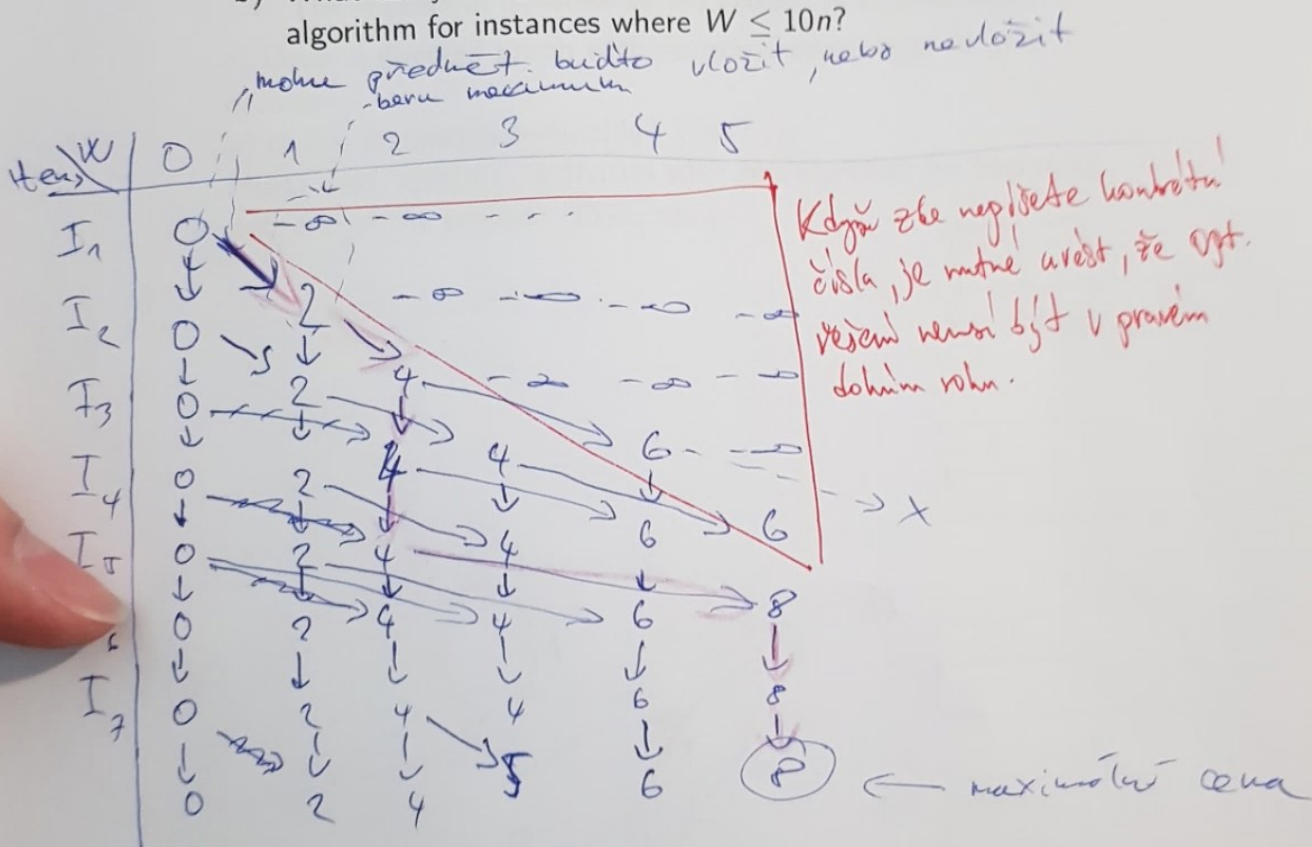 algorithm for instances where W ≤ 10n?
mohu předmět buďto vložit, nebo nevložit
- beru maximum
Items W 0 1 2 3 4 5
I1 0 -∞ -∞ - - -
I2 0 2 -∞ -∞ -∞ -∞
I3 0 2 4 -∞ -∞ -∞
I4 0 2 4 4 6 -∞
I5 0 2 4 4 6 6
6 0 2 4 4 6 8
I7 0 2 4 4 6 8
0 2 4 5 6 8 ← maximální cena
x
Když zde nepíšete konkrétní
čísla, je nutné uvést, že opt.
řešení nemusí být v pravém
dolním rohu.